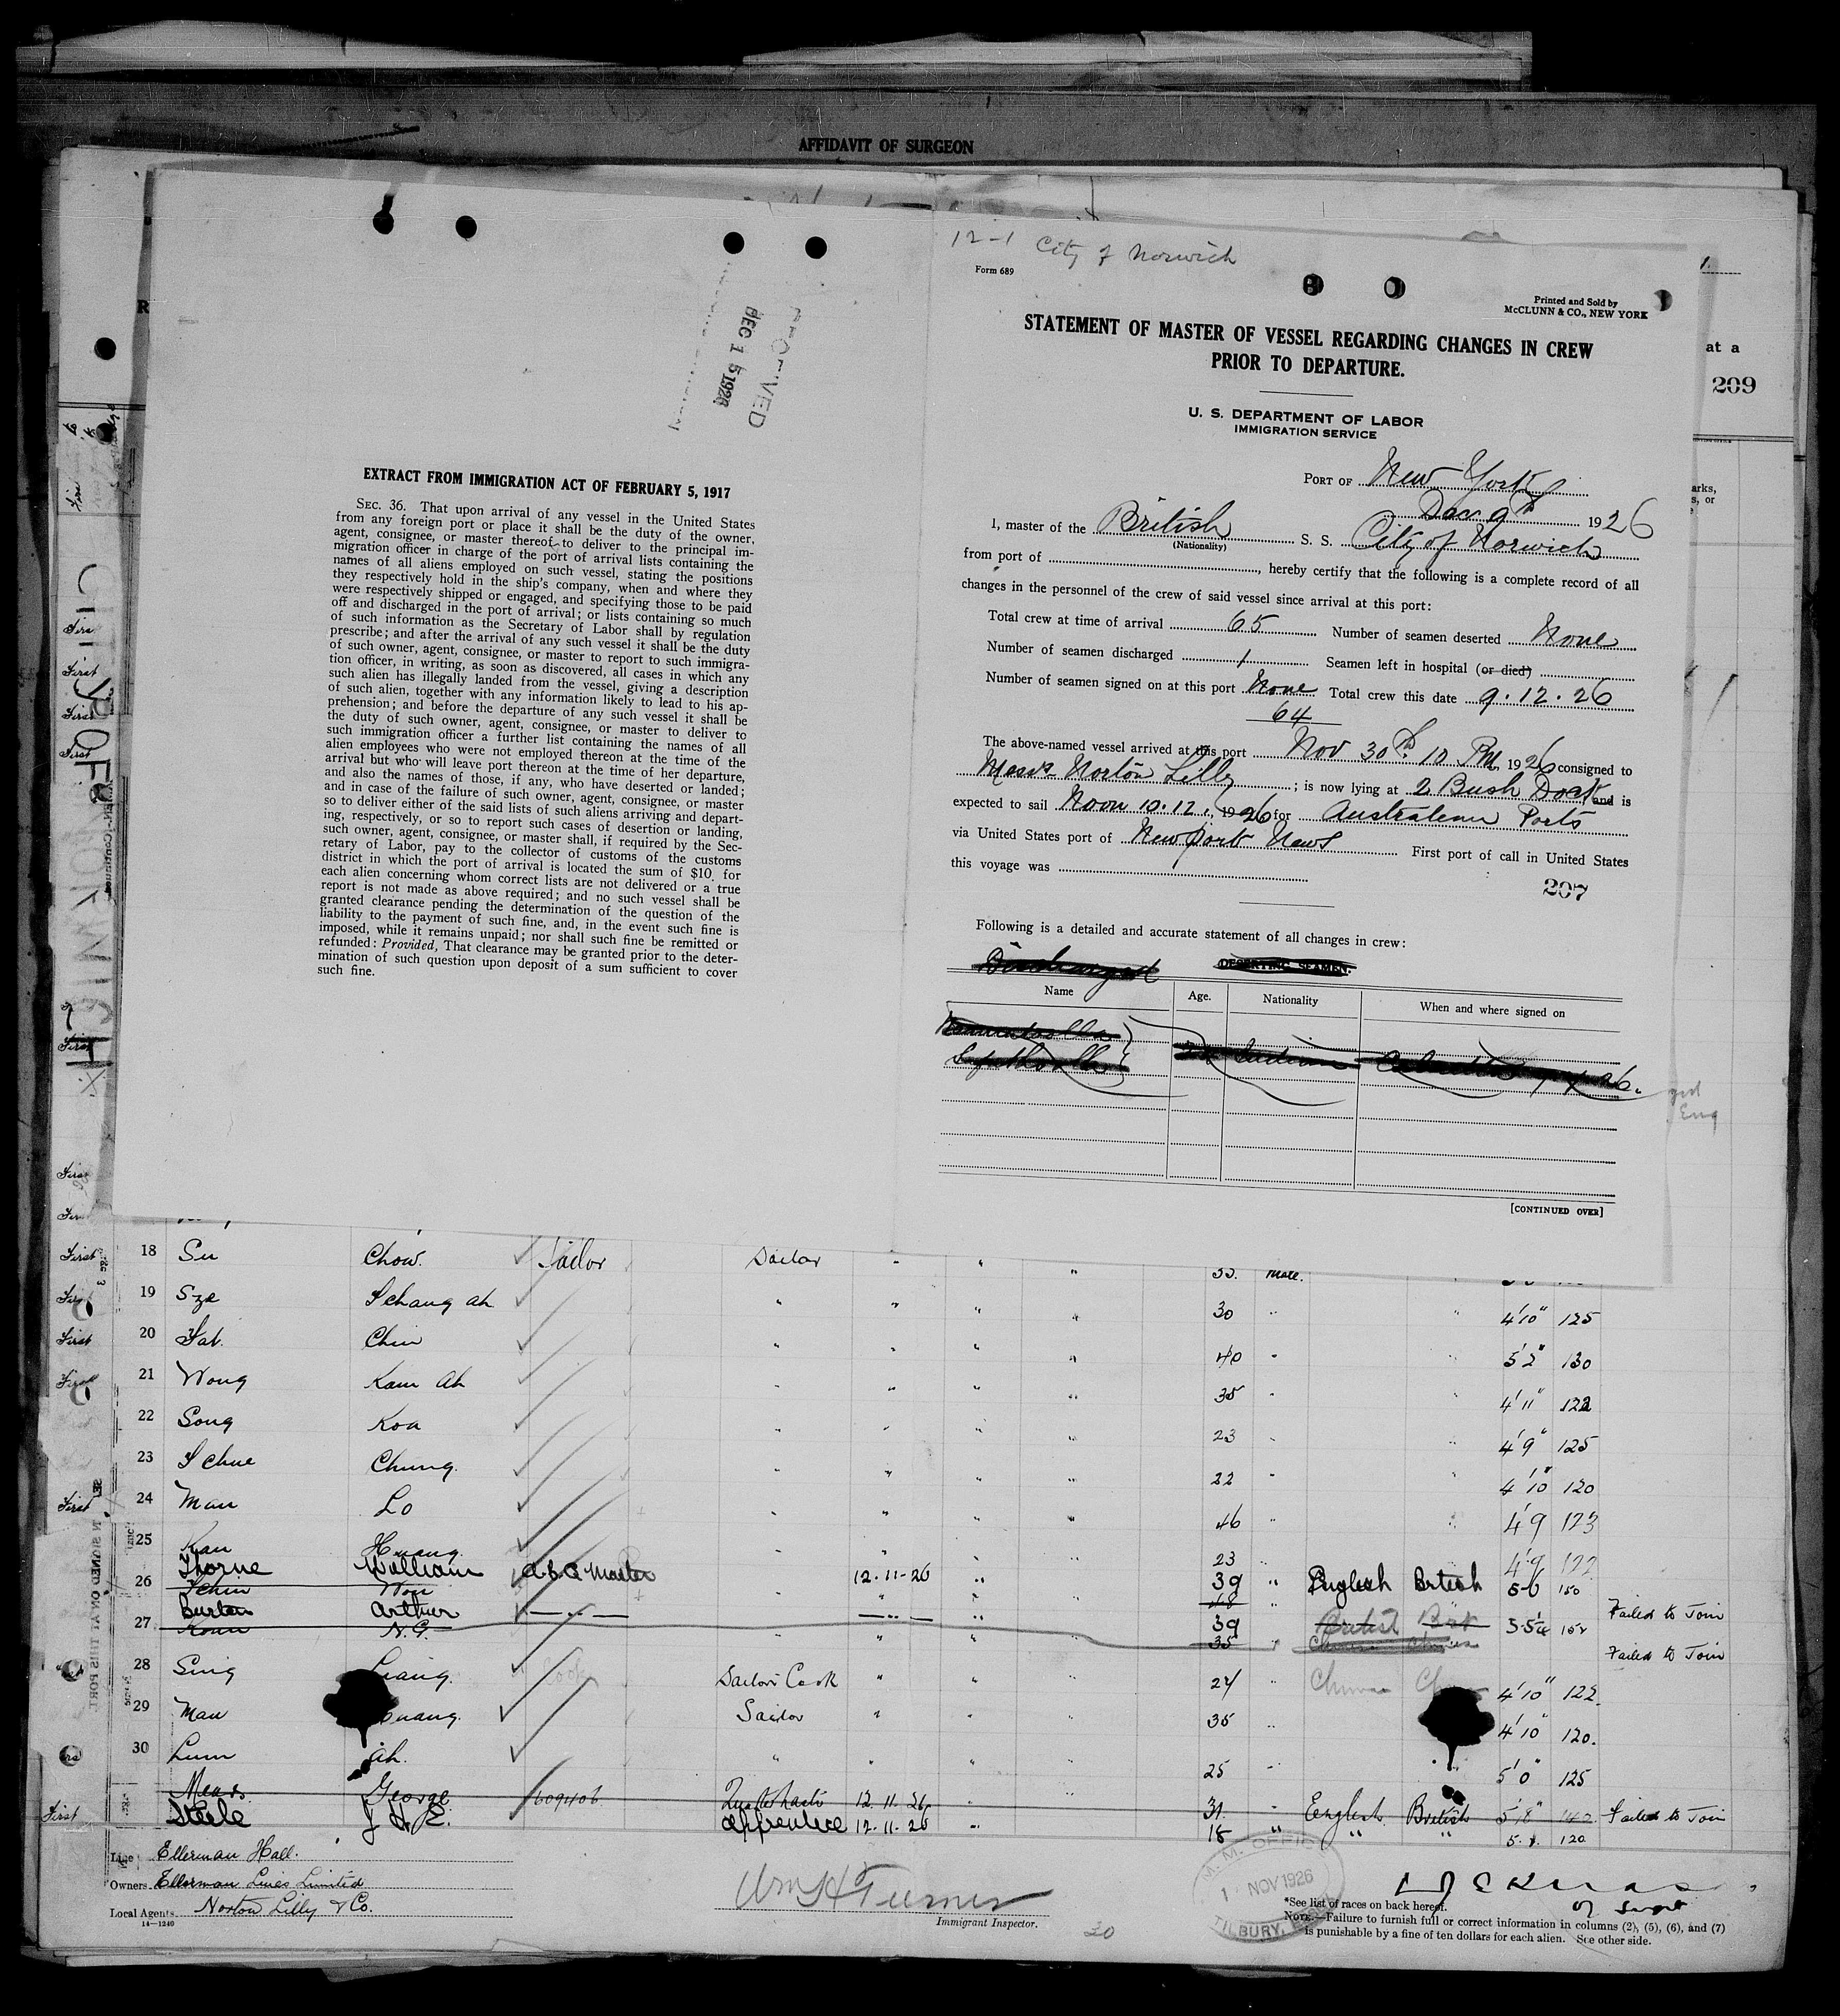 AFFIDAVIT OF SURGEON
DEC 15 1926
EXTRACT FROM IMMIGRATION ACT OF FEBRUARY 5, 1917
SEC. 36. That upon arrival of any vessel in the United States
from any foreign port or place it shall be the duty of the owner,
agent, consignee, or master thereof to deliver to the principal im-
migration officer in charge of the port of arrival lists containing the
names of all aliens employed on such vessel, stating the positions
they respectively hold in the ship's company, when and where they
were respectively shipped or engaged, and specifying those to be paid
off and discharged in the port of arrival; or lists containing so much
of such information as the Secretary of Labor shall by regulation
prescribe; and after the arrival of any such vessel it shall be the duty
of such owner, agent, consignee, or master to report to such immigra-
tion officer, in writing, as soon as discovered, all cases in which any
such alien has illegally landed from the vessel, giving a description
of such alien, together with any information likely to lead to his ap-
prehension; and before the departure of any such vessel it shall be
the duty of such owner, agent, consignee, or master to deliver to
such immigration officer a further list containing the names of all
alien employees who were not employed thereon at the time of the
arrival but who will leave port thereon at the time of her departure,
and also the names of those, if any, who have deserted or landed;
and in case of the failure of such owner, agent, consignee, or master
so to deliver either of the said lists of such aliens arriving and depart-
ing, respectively, or so to report such cases of desertion or landing,
such owner, agent, consignee, or master shall, if required by the Sec-
retary of Labor, pay to the collector of customs of the customs
district in which the port of arrival is located the sum of $10 for
each alien concerning whom correct lists are not delivered or a true
report is not made as above required; and no such vessel shall be
granted clearance pending the determination of the question of the
liability to the payment of such fine, and, in the event such fine is
imposed, while it remains unpaid; nor shall such fine be remitted or
refunded: Provided, That clearance may be granted prior to the deter-
mination of such question upon deposit of a sum sufficient to cover
such fine.
12-1 City of Norwich
Form 689
Printed and Sold by
McCLUNN & CO., NEW YORK
STATEMENT OF MASTER OF VESSEL REGARDING CHANGES IN CREW
PRIOR TO DEPARTURE.
U. S. DEPARTMENT OF LABOR
IMMIGRATION SERVICE
PORT OF New York
Dec 9th 1926
I, master of the British S. S. City of Norwich
(Nationality)
from port of , hereby certify that the following is a complete record of all
changes in the personnel of the crew of said vessel since arrival at this port:
Total crew at time of arrival 65 Number of seamen deserted None
Number of seamen discharged 1 Seamen left in hospital (or died)
Number of seamen signed on at this port None Total crew this date 9.12.26
64
The above-named vessel arrived at this port Nov 30th 10 PM, 1926 consigned to
Messrs Norton Lilly ; is now lying at 2 Bush Dock and is
expected to sail Noon 10.12., 1926 for Australian Ports
via United States port of Newport News First port of call in United States
this voyage was
207
Following is a detailed and accurate statement of all changes in crew:
Discharged DESERTING SEAMEN.
Name Age. Nationality When and where signed on
[CONTINUED OVER]
at a
209
First 18 Su Chow. Sailor Sailor " " " 33. Male.
First 19 Sze Schang ah " " " " 30 " " 4'10" 125
First 20 Fat Chin " " " " 40 " 5'2" 130
First 21 Wong Kam Ah " " " " 35 " " 4'11" 122
22 Song Koa " " " " 23 " " 4'9" 125
23 Schue Chung. " " " " 22 " " 4'10" 120
First 24 Man Lo " " " " 46 " " 4'9 123
25 Kan Huang " " " 23 " 4'9 122
Thorne William 12.11.26 " 39 " English British 5-6 150
26 Won " " Failed to Join
Burton Arthur " " 39
27 N.G. " " " 35 " Failed to Join
28 Sing Liang. Sailors Cook " " " 24 " 4'10" 122.
29 Man Huang. Sailor " " " 35 " 4'10" 120.
30 Lum Ah. " " " " 25 " " 5'0" 125
Mears. George 12.11.26 " 31. " English British 5'8" Failed to Join
First Steele J H E. apprentice 12-11-26 " 18 " " " 5.8. 120
Line Ellerman Hall.
Owners Ellerman Lines Limited
Local Agents Norton Lilly & Co.
14-1240
Wm H Turner
Immigrant Inspector.
20
NOV 1926
TILBURY,
*See list of races on back hereof.
NOTE.—Failure to furnish full or correct information in columns (2), (5), (6), and (7)
is punishable by a fine of ten dollars for each alien. See other side.